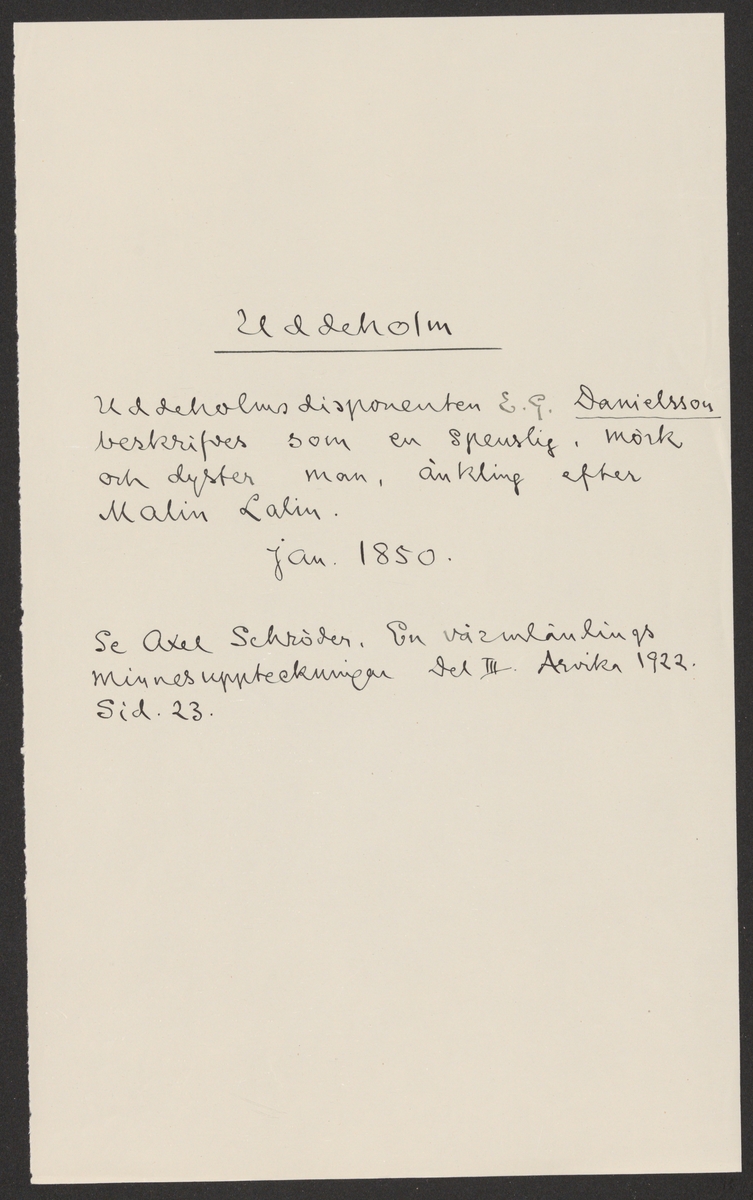 Uddeholm
Uddeholmsdisponenten E. G. Danielsson
beskrifves som en spenslig, mörk
och dyster man, änkling efter
Malin Lalin.
jan. 1850.
Se Axel Schröder. En värmlänlings
Minnesuppteckningar Del III. Arvika 1922.
Sid. 23.